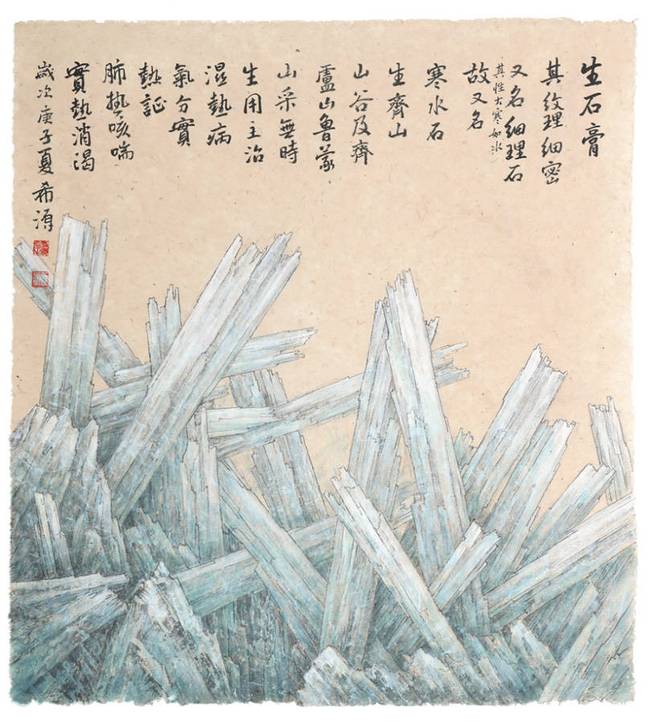 生石膏
其纹理细密
又名细理石
其性大寒如水
故又名
寒水石
生齊山
山谷及齊
盧山魯蒙
山采無時
生用主治
濕熱病
氣分實
熱証
肺热咳喘
實熱消渴
歲次庚子夏希源